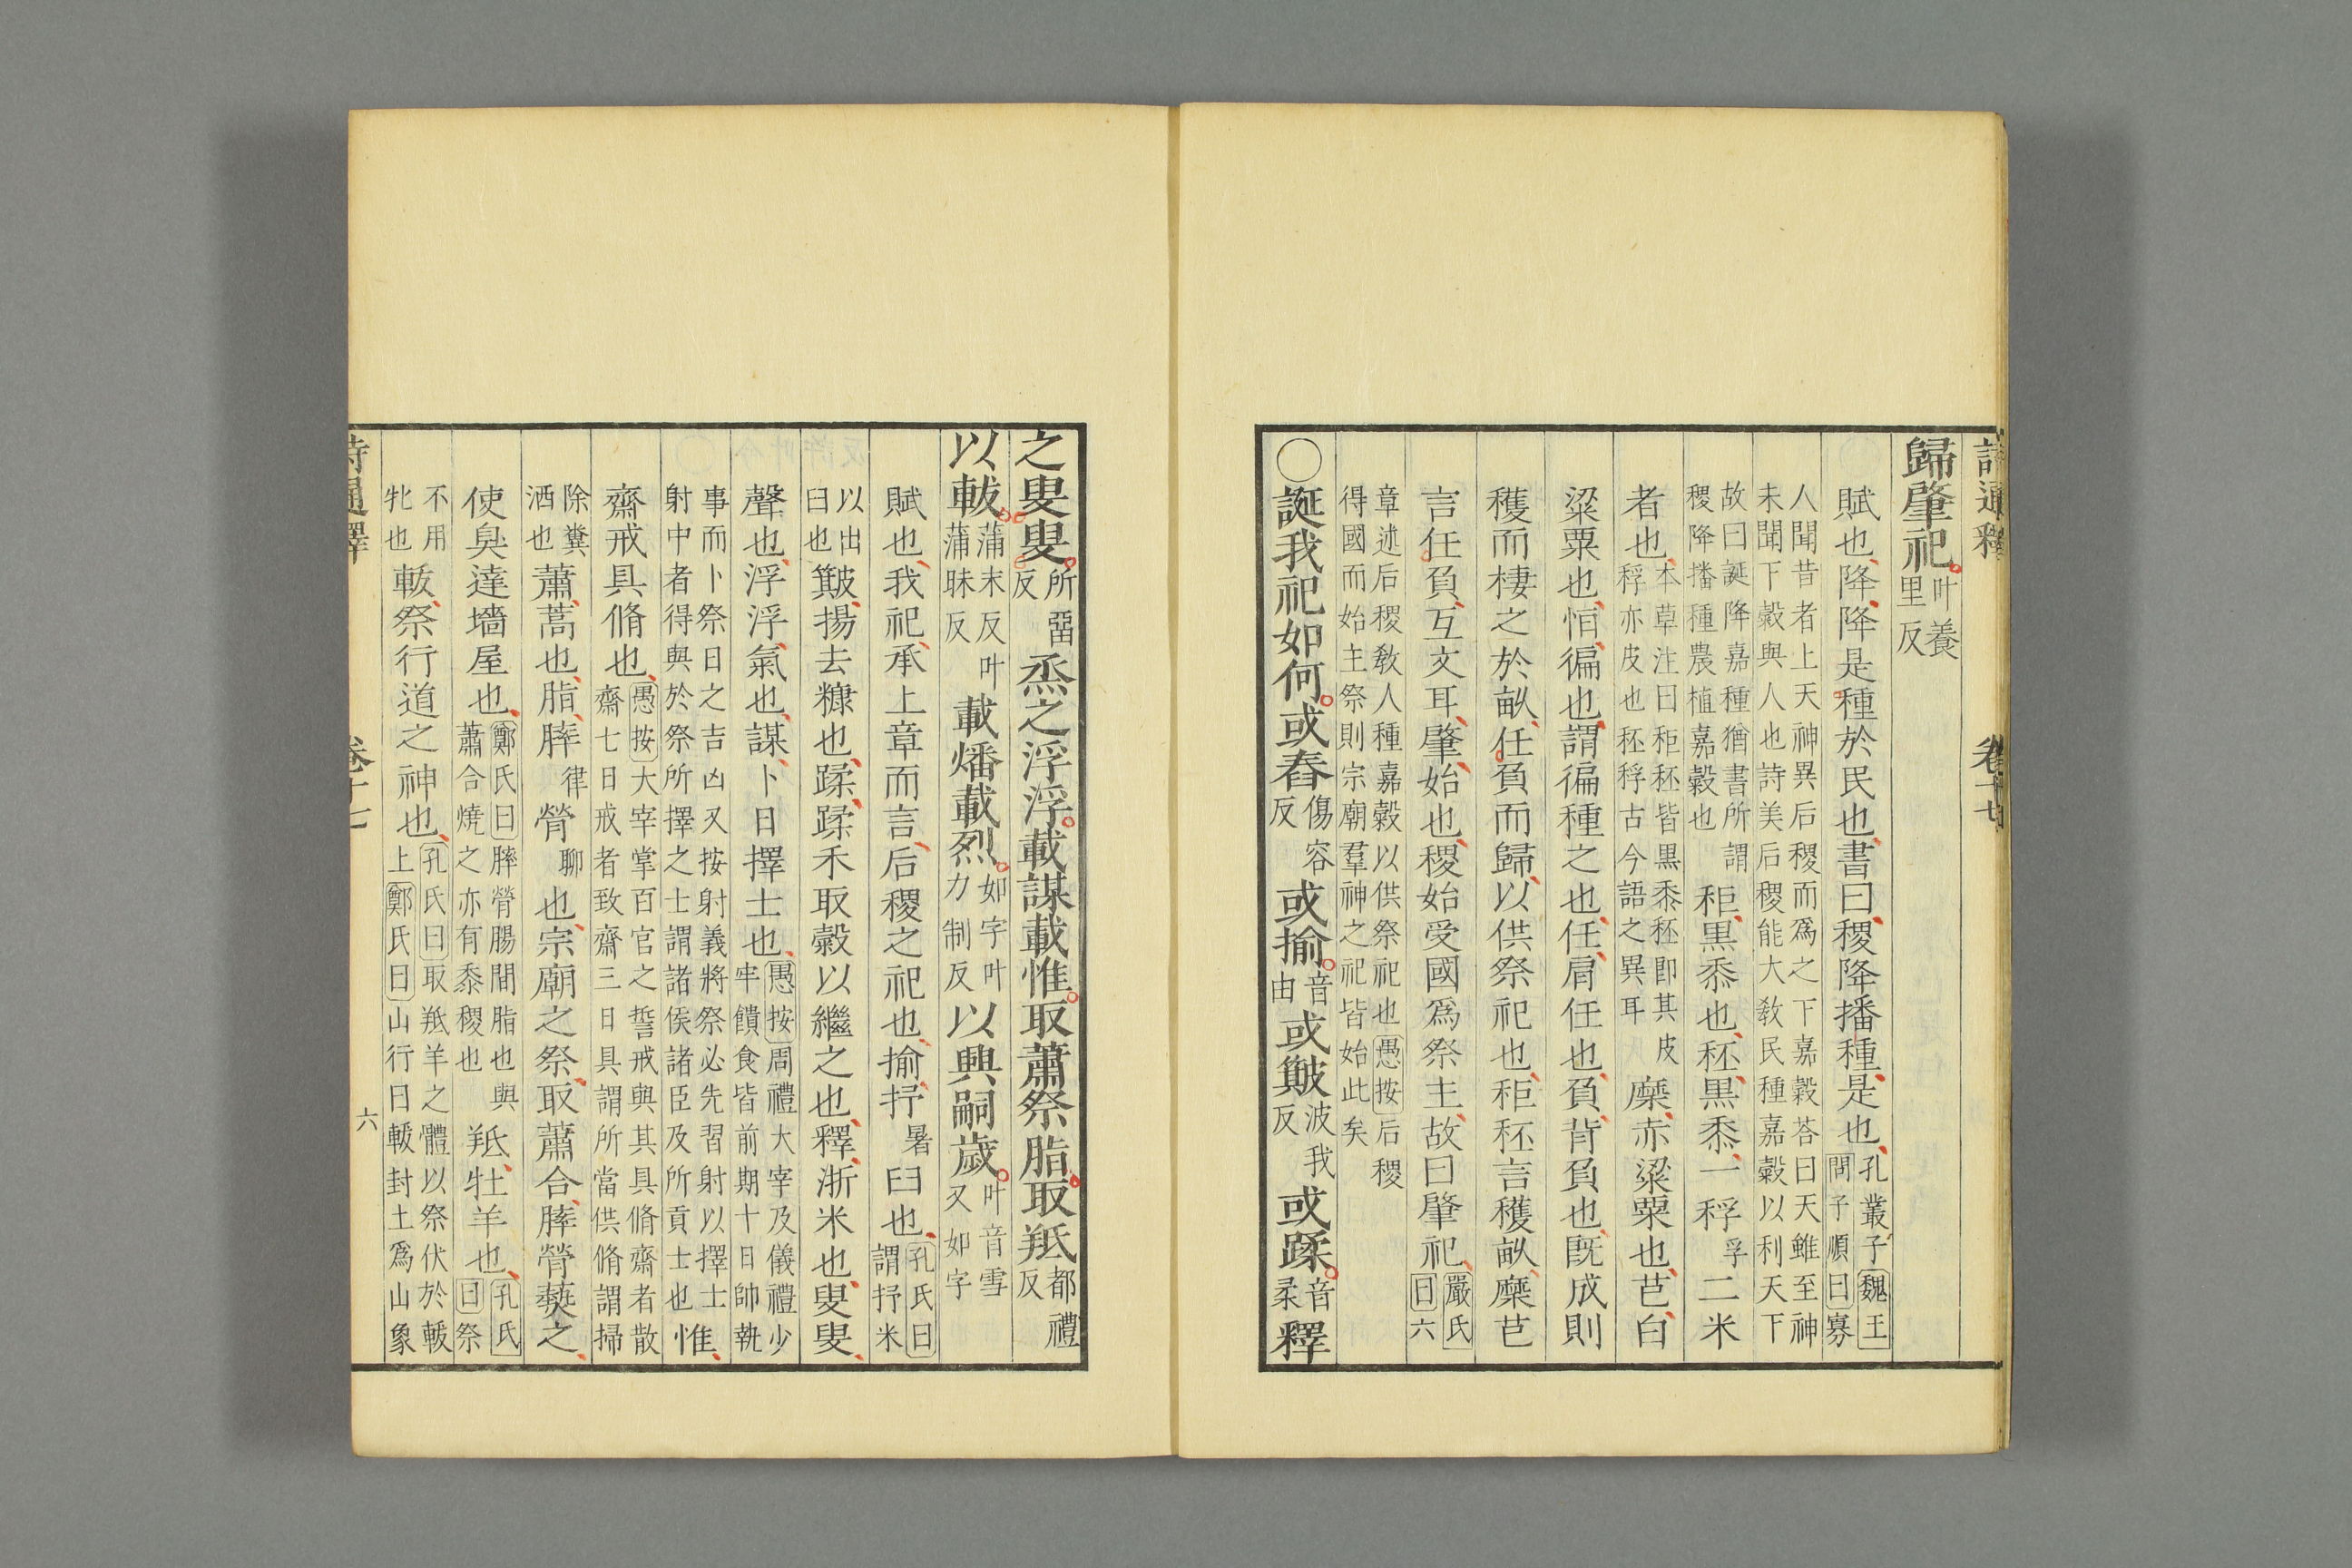 詩通釋　卷十七
歸肇祀叶養里反
賦也降降是種於民也書曰稷降播種是也孔叢子魏王問子順曰寡
人聞昔者上天神異后稷而爲之下嘉穀荅曰天雖至神
未聞下穀與人也詩美后稷能大敎民種嘉穀以利天下
故曰誕降嘉種猶書所謂稷降播種農植嘉穀也秬黑黍也秠黑黍一稃孚二米
者也本草注曰秬秠皆黑黍秠卽其皮稃亦皮也秠稃古今語之異耳穈赤粱粟也芑白
粱粟也恒徧也謂徧種之也任肩任也負背負也旣成則
穫而棲之於畝任負而歸以供祭祀也秬秠言穫畝穈芑
言任負互文耳肇始也稷始受國爲祭主故曰肇祀嚴氏曰六
章述后稷敎人種嘉穀以供祭祀也愚按后稷
得國而始主祭則宗廟羣神之祀皆始此矣
○誕我祀如何或舂傷容反或揄音由或簸波我反或蹂音柔釋
之叟叟所留反烝之浮浮載謀載惟取蕭祭脂取羝都禮反
以軷蒲末反叶蒲昧反載燔載烈如字叶力制反以興嗣歲叶音雪又如字
賦也我祀承上章而言后稷之祀也揄抒暑臼也孔氏曰謂抒米
以出臼也簸揚去糠也蹂蹂禾取穀以繼之也釋淅米也叟叟
聲也浮浮氣也謀卜日擇士也愚按周禮大宰及儀禮少牢饋食皆前期十日帥執
事而卜祭日之吉凶又按射義將祭必先習射以擇士
射中者得與於祭所擇之士謂諸侯諸臣及所貢士也惟
齋戒具脩也愚按大宰掌百官之誓戒與其具脩齋者散齋七日戒者致齋三日具謂所當供脩謂掃
除糞洒也蕭蒿也脂膟律膋聊也宗廟之祭取蕭合膟膋爇之
使臭達墻屋也鄭氏曰膟膋腸間脂也與蕭合燒之亦有黍稷也羝牡羊也孔氏曰祭
不用牝也軷祭行道之神也孔氏曰取羝羊之體以祭伏於軷上鄭氏曰山行曰軷封土爲山象
詩通釋　卷十七　六